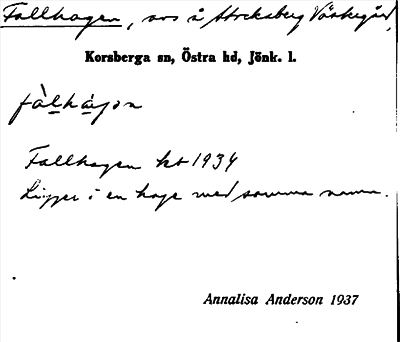 Fallhagen, avs å Stocksberg Västergård,
Korsberga sn, Östra hd, Jönk. l.
fàlhàgən
Fallhagen kb 1934
Ligger i en hage med samma namn.
Annalisa Anderson 1937